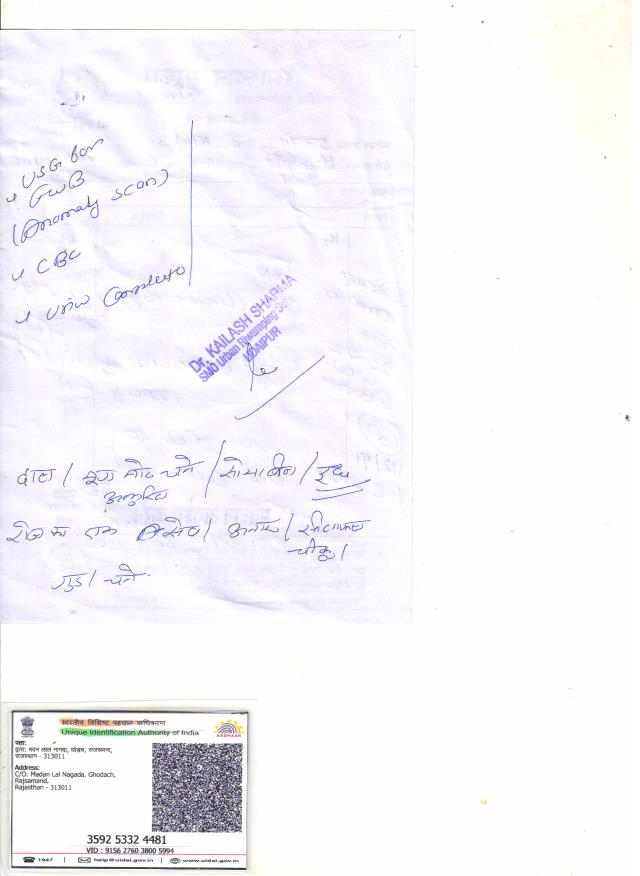 USG for
GWB
(Anomaly scan)
CBC
Urine Complete
Dr. KAILASH SHARMA
SMO Urban Rwamping Sc
UDAIPUR
दाल / मूंग मोठ चने / सोयाबीन / दूध
अंकुरित
रोज का एक सेव / अनार / सीताफल
चीकू /
गुड़ / चने
भारतीय विशिष्ट पहचान प्राधिकरण
Unique Identification Authority of India
AADHAAR
पता:
द्वारा: मदन लाल नागदा, घोड़च, राजसमन्द,
राजस्थान - 313011
Address:
C/O: Madan Lal Nagada, Ghodach,
Rajsamand,
Rajasthan - 313011
3592 5332 4481
VID : 9156 2760 3800 5994
1947 | help@uidai.gov.in | www.uidai.gov.in